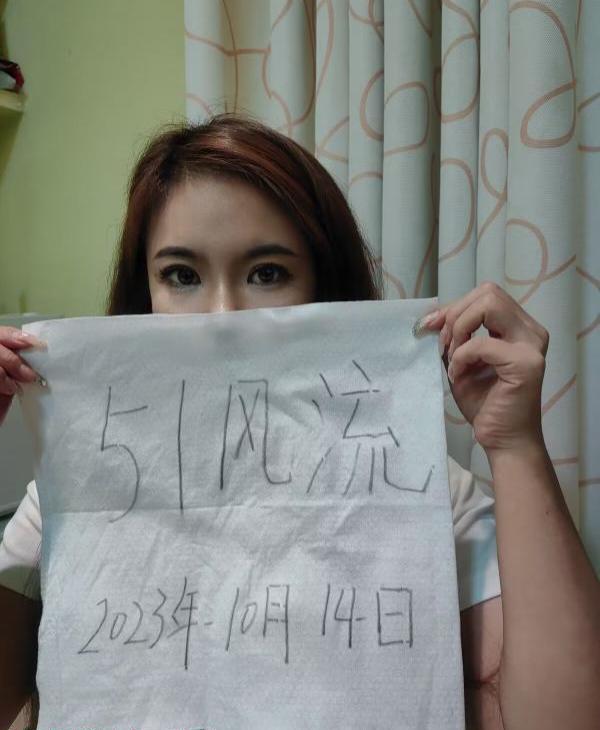 51风流
2023年10月14日